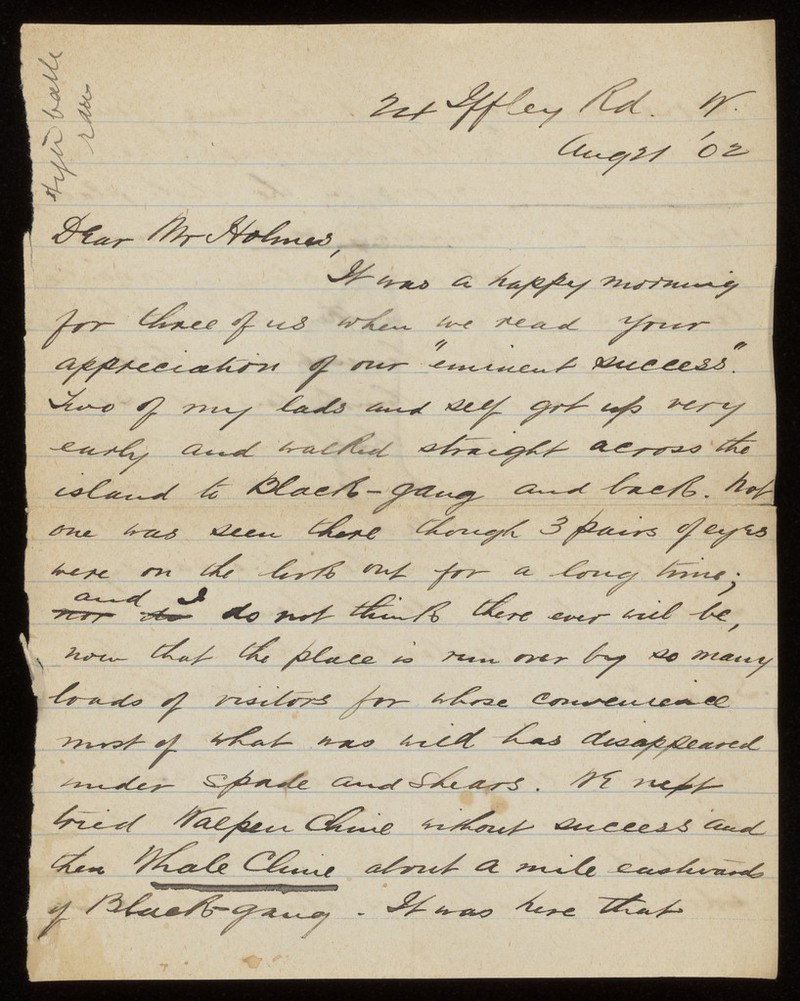 24 Iffley Rd. W.
Aug 21 '02
Dear Mr Holmes,
It was a happy morning
for three of us when we read your
appreciation of our "eminent success".
Two of my lads and self got up very
early and walked straight across the
island to Black-gang and back. Not
one was seen there though 3 pairs of eyes
were on the look out for a long time;
and I
nor do do not think there ever will be,
now that the place is run over by so many
loads of visitors for whose convenience
most of what was wild has disappeared
under spade and shears. We next
tried Walpen Chine without success and
then Whale Chine about a mile eastwards
of Black-gang. It was here that